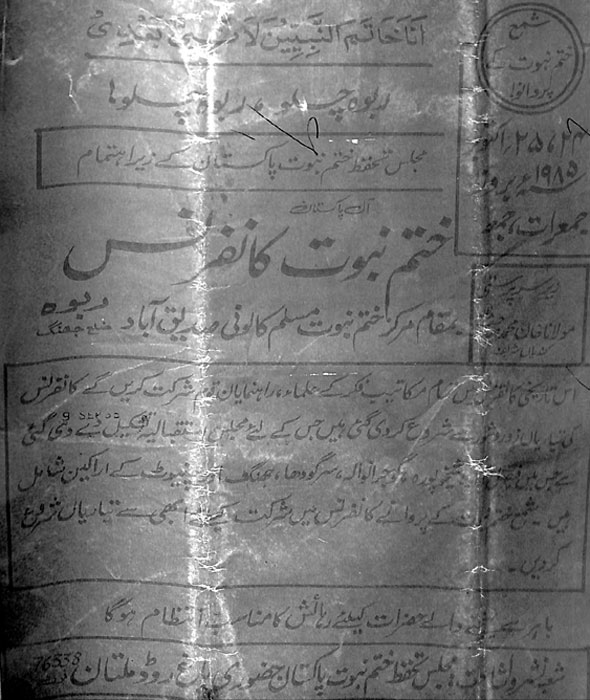 انا خاتم النبیین لا نبی بعدی
شمع
ختم نبوت کے
پروانو!
ربوہ چلو، ربوہ چلو!
مجلس تحفظ ختم نبوت پاکستان کے زیر اہتمام
۲۴، ۲۵ اکتو
۱۹۸۵ء بروز
جمعرات، جمع
آل پاکستان
ختم نبوت کانفرنس
مولانا خان محمد
بمقام مرکز ختم نبوت مسلم کالونی صدیق آباد ربوہ ضلع جھنگ
اس تاریخی کانفرنس تمام مکاتیب فکر کے علماء، راہنمایان قوم شرکت کریں گے کانفرنس
کی تیاریاں زور و شور سے شروع کردی گئی ہیں جس کے لئے مجلس استقبالیہ تشکیل دے دی گئی
ہے جس میں شیخوپورہ، گوجرانوالہ، سرگودھا، جھنگ کے اراکین شامل
ہیں شمع ختم نبوت کے پروانے کانفرنس میں شرکت کیلئے ابھی سے تیاریاں شروع
کردیں۔
باہر سے آنے والے حضرات کیلئے رہائش کا مناسب انتظام ہوگا
شعبہ نشر و اشاعت، مجلس تحفظ ختم نبوت پاکستان حضوری باغ روڈ ملتان 76538